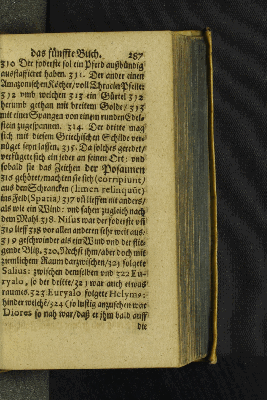 das fünffte Buch. 287
310 Der föderste sol ein Pferd außbündig
ausstaffieret haben. 311. Der ander einen
Amazonischen Köcher/ voll Thracim Pfeiler
312 und welchen 313 ein Gürtel 312
herumb gethan mit breitem Golde/ 313
mit einer Spangen von einem runden Edel-
stein zugespannen. 314. Der dritte mag
sich mit diesem Griechischen Schilde ver-
nüget seyn lassen. 315. Da solches geredet/
verfügete sich ein jeder an seinen Ort: und
sobald sie das Zeichen der Posaunen
316 gehöret/ machten sie sich (corripiunt)
aus den Schrancken (limen relinquunt)
ins Feld (Spatia) 317 uñ lieffen mit anders/
als wie ein Wind: und sahen zugleich nach
dem Mahl. 318. Nisus war der foderste uñ
319 lieff 318 vor allen anderen sehr weit aus:
319 geschwinder als ein Wind und der flie-
gende Blitz. 320. Nechst ihm/ aber doch mit
ziemlichem Raum darzwischen/ 321 folgete
Salius: zwischen demselben und 322 Eu-
ryalo, so der dritte/ 321 war auch etwas
raumes. 323 Euryalo folgete Helymus:
hinder welchē/ 324 (so lustig anzusehen war
Diores so nah war/ daß er ihm bald auff
die